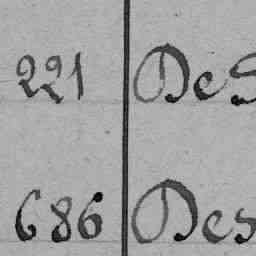 221 De S
686 Des